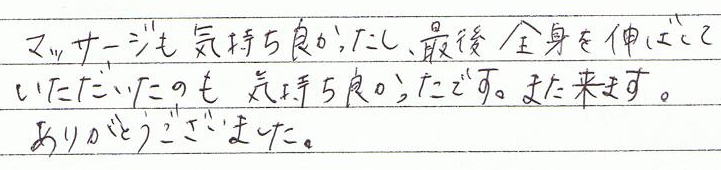 マッサージも気持ち良かったし、最後全身を伸ばして
いただいたのも気持ち良かったです。また来ます。
ありがとうございました。